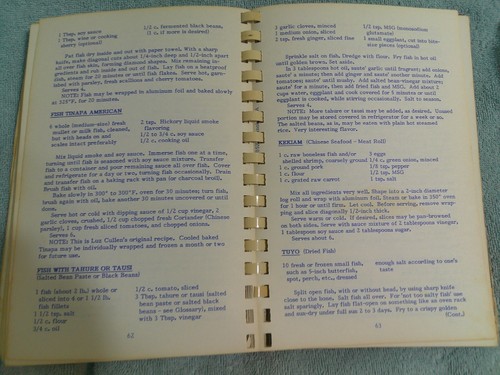 1 Tbsp. soy sauce
1 Tbsp. wine or cooking
sherry (optional)
1/2 c. fermented black beans,
(1 c. if more is desired)
Pat fish dry inside and out with paper towel. With a sharp
knife, make diagonal cuts about 1/4-inch deep and 1/2-inch apart
all over fish skin, forming diamond shapes. Mix remaining in-
gredients and rub inside and out of fish. Lay fish on a heatproof
dish, steam for 20 minutes or until fish flakes. Serve hot, garn-
ished with parsley, fresh scallions and cherry tomatoes.
Serves 4.
NOTE: Fish may be wrapped in aluminum foil and baked slowly
at 325°F. for 30 minutes.
FISH TINAPA AMERICAN
6 whole (medium-size) fresh
mullet or milk fish, cleaned,
but with heads on and
scales intact preferably
2 tsp. Hickory liquid smoke
flavoring
1/2 to 3/4 c. soy sauce
1/2 c. cooking oil
Mix liquid smoke and soy sauce. Immerse fish one at a time,
turning until fish is seasoned with soy sauce mixture. Transfer
fish to a container and pour remaining sauce all over fish. Cover
and refrigerate for a day or two, turning fish occasionally. Drain
and transfer fish on a baking rack with pan for charcoal broil.
Brush fish with oil.
Bake slowly in 300° to 350°F. oven for 30 minutes; turn fish,
brush again with oil, bake another 30 minutes uncovered or until
done.
Serve hot or cold with dipping sauce of 1/2 cup vinegar, 2
garlic cloves, crushed, 1/2 cup chopped fresh Coriander (Chinese
parsley), 1 cup fresh sliced tomatoes, and chopped onions.
Serves 6.
NOTE: This is Lux Cullen's original recipe. Cooked baked
Tinapa may be individually wrapped and frozen a month or two
for future use.
FISH WITH TAHURE OR TAUSI
(Salted Bean Paste or Black Beans)
1 fish (about 2 lb.) whole or
sliced into 4 or 1 1/2 lb.
fish fillets
1 1/2 tsp. salt
1/2 c. flour
3/4 c. oil
1/2 c. tomato, sliced
3 Tbsp. tahure or tausi (salted
bean paste or salted black
beans - see Glossary), mixed
with 3 Tbsp. vinegar
62
2 garlic cloves, minced
1 medium onion, sliced
2 tsp. fresh ginger, sliced fine
1/2 tsp. MSG (monosodium
glutamate)
1 small eggplant, cut into bite-
size pieces (optional)
Sprinkle salt on fish. Dredge with flour. Fry fish in hot oil
until golden brown. Set aside.
In 2 tablespoons hot oil, saute garlic until fragrant; add onions,
saute' a minute; then add ginger and saute' another minute. Add
tomatoes; saute' until mushy. Add salted bean-vinegar mixture;
saute' for a minute, then add fried fish and MSG. Add about 2
cups water, eggplant and cook covered for 5 minutes or until
eggplant is cooked, while stirring occasionally. Salt to season.
Serves 4.
NOTE: More tahure or tausi may be added, as desired. Unused
portion may be stored covered in refrigerator for a week or so.
The salted beans, as is, may be eaten with plain hot steamed
rice. Very interesting flavor.
KEKIAM (Chinese Seafood - Meat Roll)
1 c. raw boneless fish and/or
shelled shrimp, coarsely ground
1 c. ground pork
1 c. flour
1 c. grated raw carrot
3 eggs
1/4 c. green onion, minced
1/2 tsp. pepper
1/2 tsp. MSG
1 tsp. salt
Mix all ingredients very well. Shape into a 3-inch diameter
log roll and wrap with aluminum foil. Steam or bake in 350° oven
for 1 hour or until firm. Let cool. Before serving, remove wrap-
ping and slice diagonally 1/2-inch thick.
Serve warm or cold. If desired, slices may be pan-browned
on both sides. Serve with sauce mixture of 2 tablespoons vinegar,
1 tablespoon soy sauce and 2 tablespoons sugar.
Serves about 6.
TUYO (Dried Fish)
10 fresh or frozen small fish,
such as 5-inch butterfish,
spot, perch, etc., dressed
enough salt according to one's
taste
Split open fish, with or without head, by using sharp knife
close to the bone. Salt fish all over. For 'not too salty fish' use
salt sparingly. Lay fish flat-open on something like an oven rack
and sun-dry under full sun 2 to 3 days. Fry to a crispy golden
(Cont.)
63